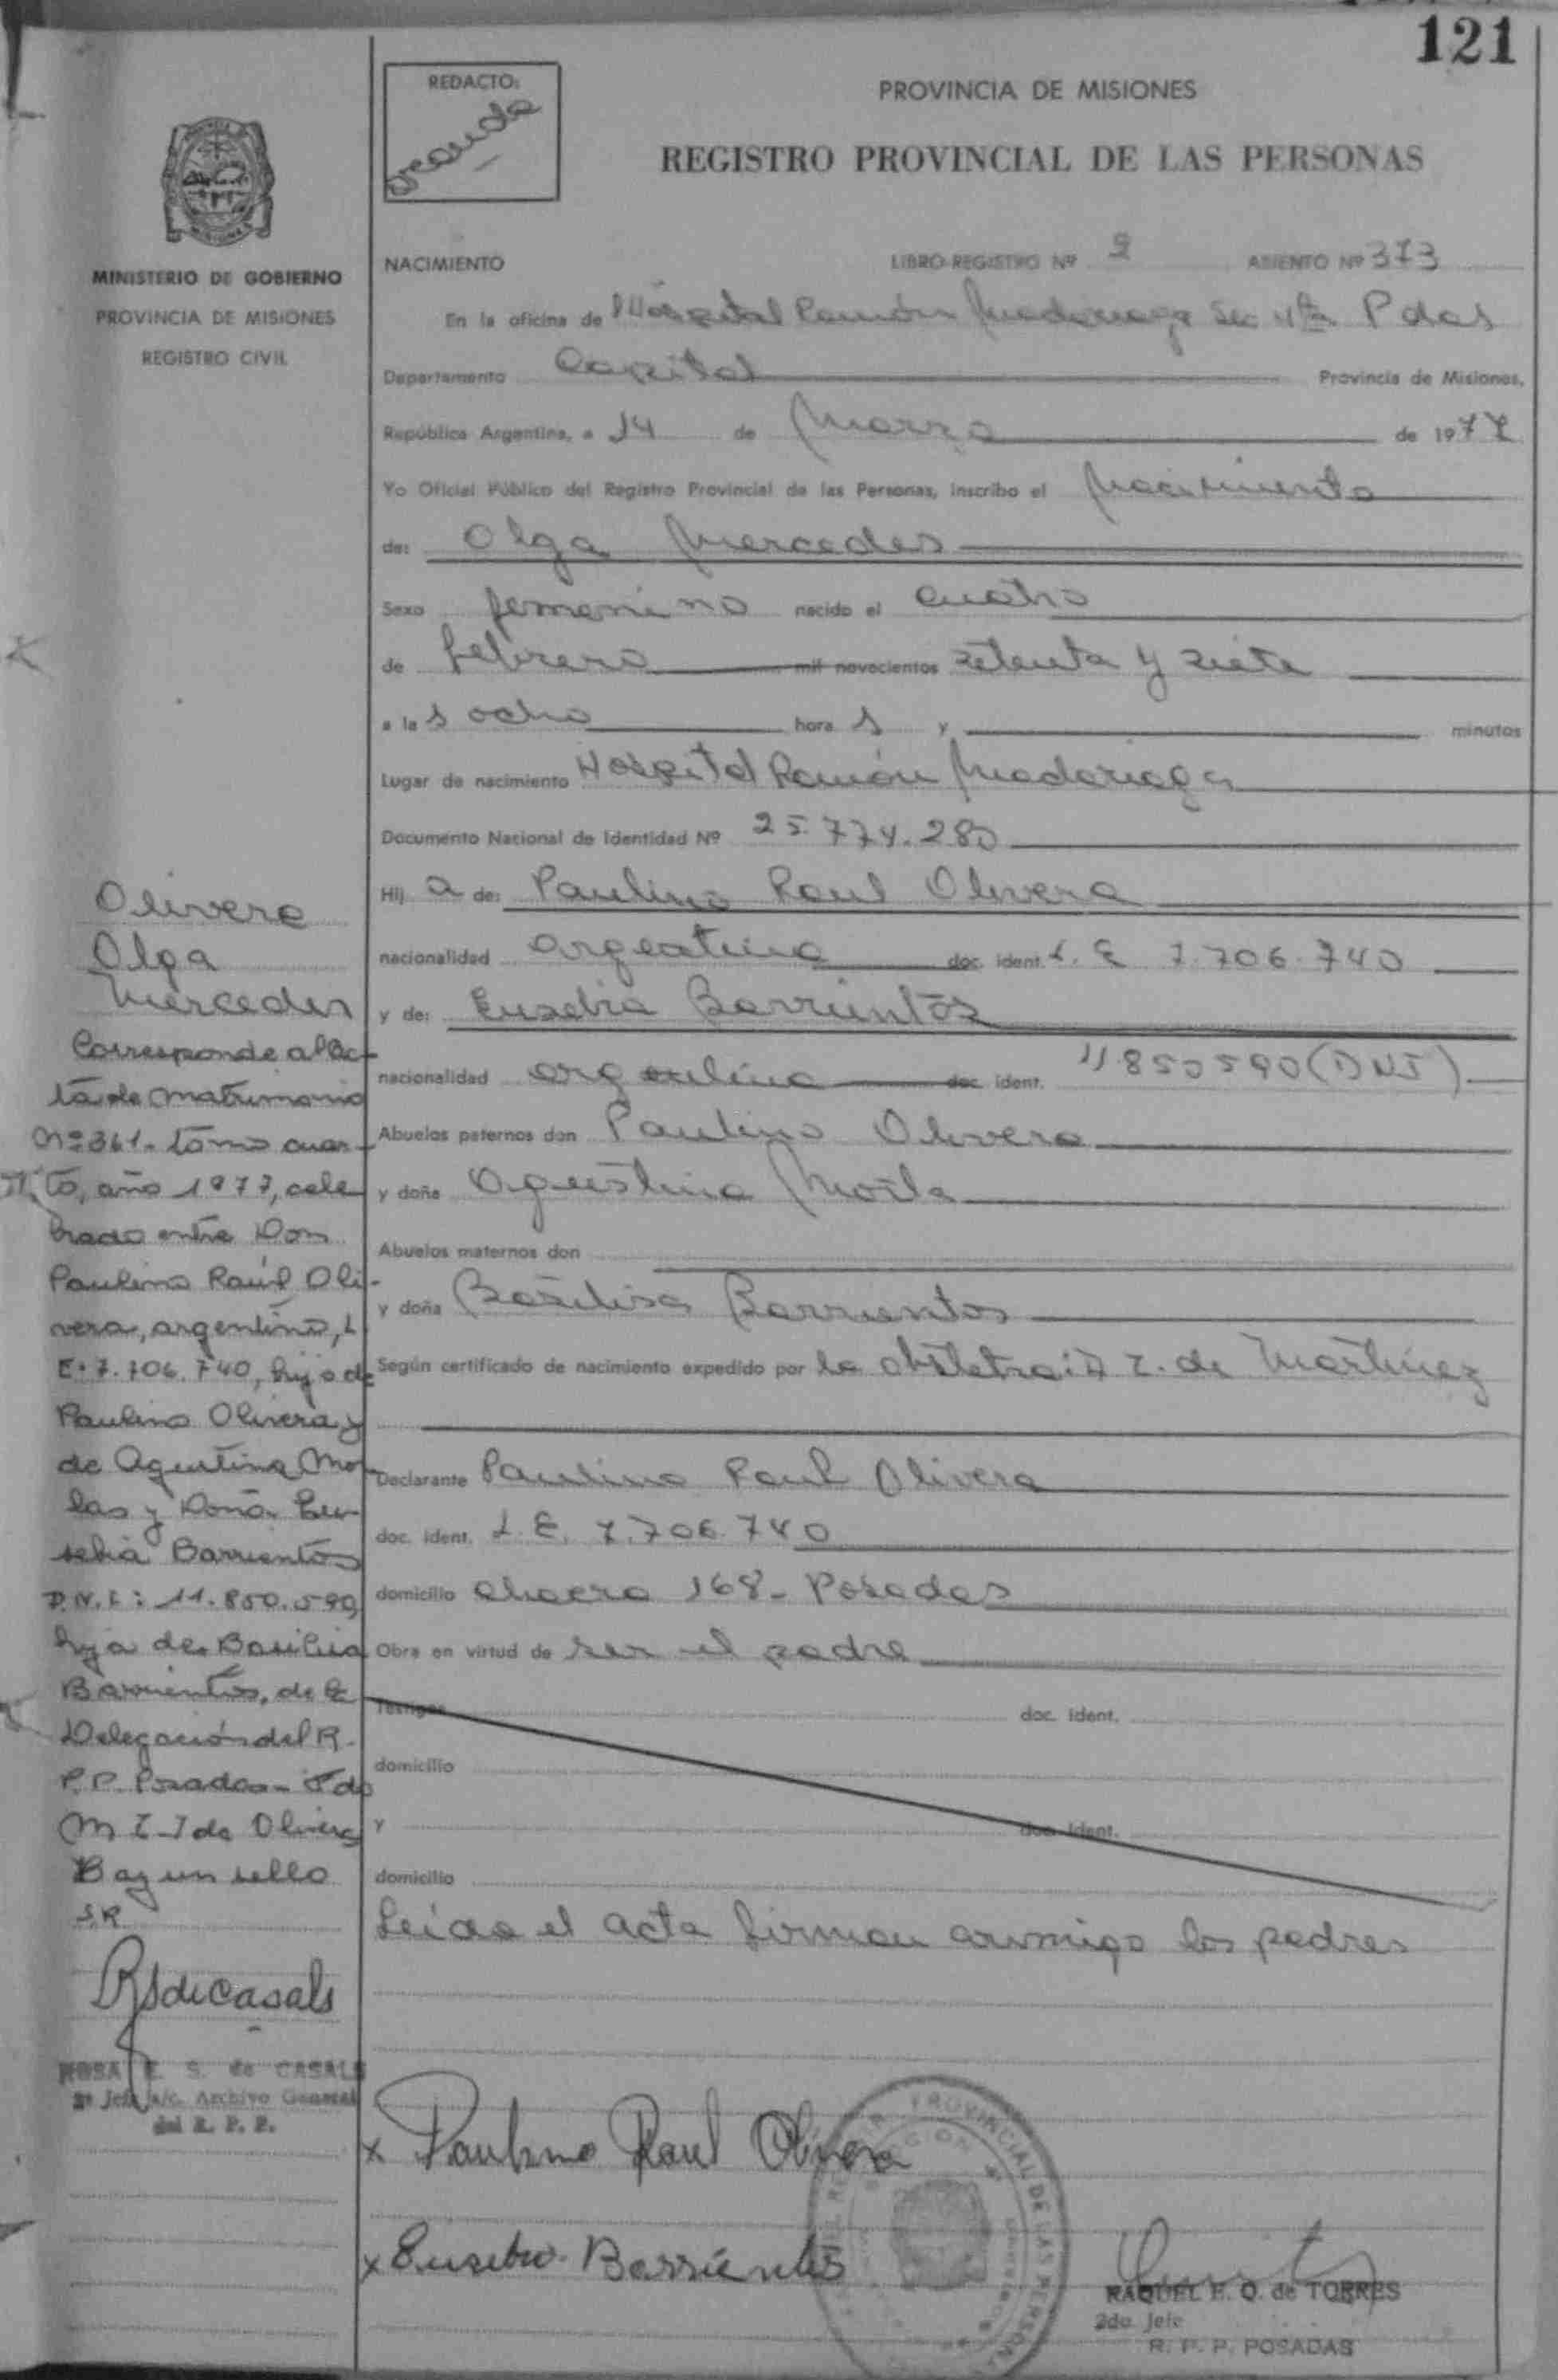 121
REDACTO:
PROVINCIA DE MISIONES
REGISTRO PROVINCIAL DE LAS PERSONAS
MINISTERIO DE GOBIERNO
PROVINCIA DE MISIONES
REGISTRO CIVIL
NACIMIENTO LIBRO-REGISTRO Nº 2 ASIENTO Nº 373
En la oficina de Hospital Ramón Madariaga Sec 4ta Pdas
Departamento Capital Provincia de Misiones,
República Argentina, a 14 de Marzo de 1977
Yo Oficial Público del Registro Provincial de las Personas, inscribo el Nacimiento
de: Olga Mercedes
Sexo femenino nacido el cuatro
de febrero mil novecientos setenta y siete
a la s ocho hora s y minutos
Lugar de nacimiento Hospital Ramón Madariaga
Documento Nacional de Identidad Nº 25.774.280
Hij a de: Paulino Raul Olivera
nacionalidad argentina doc. ident. L. E 7.706.740
y de: Eusebia Barrientos
nacionalidad argentina doc. ident. 11850590 (DNI)
Abuelos paternos don Paulino Olivera
y doña Agustina
Abuelos maternos don
y doña Basilisa Barrientos
Según certificado de nacimiento expedido por la obstetra: de Martinez
Declarante Paulino Raul Olivera
doc. ident. L.E. 7.706.740
domicilio chacra 168- Posadas
Obra en virtud de ser el padre
Testigos doc. ident.
domicilio
y doc. ident.
domicilio
Leida el acta firman conmigo los padres
Olivera
Olga
Mercedes
Corresponde al Ac-
ta de Matrimonio
Nº 361- tomo cuar-
to, año 1977, cele
brado entre Don
Paulino Raúl Oli-
vera, argentino, L
E: 7.706.740, hijo de
Paulino Olivera y
de Agustina Mo-
las y Doña Eu-
sebia Barrientos
D.N.I: 11.850.590,
hija de Basilisa
Barrientos, de la
Delegación del R.
P.P. Posadas- Fdo
M I de Olivera
Hay un sello
S.R
RSdeCasals
ROSA E. S. de CASALS
2º Jefe a/c. Archivo General
del R. P. P.
x Paulino Raul Olivera
x Eusebia Barrientos
PROVINCIAL DE LAS PERSONAS
RAQUEL E. O. de TORRES
2do Jefe
R. P. P. POSADAS